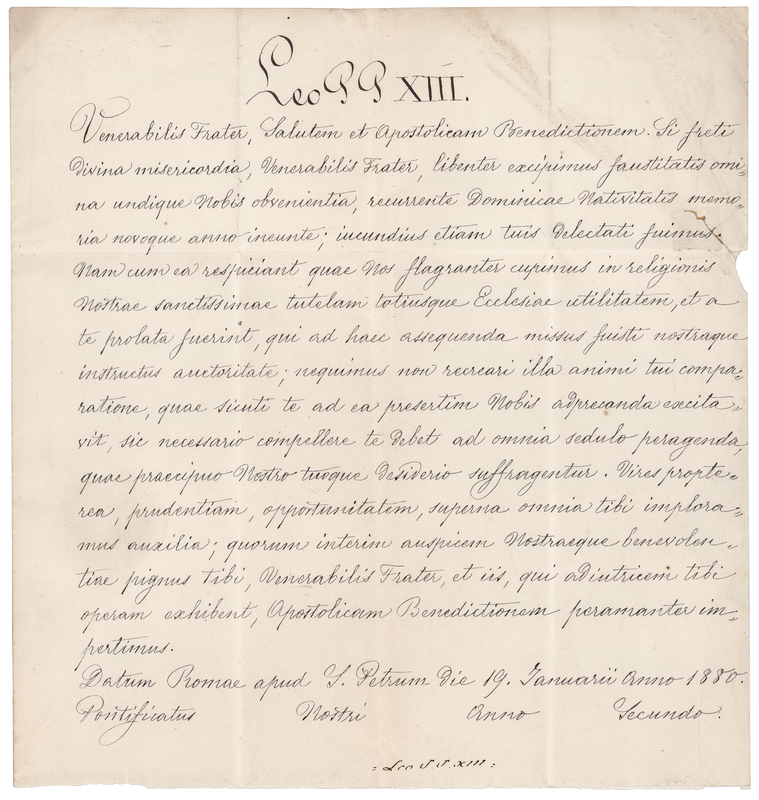 Leo PP XIII.
Venerabilis Frater, Salutem et Apostolicam Benedictionem. Si freti
divina misericordia, Venerabilis Frater, libenter excipimus faustitatis omi=
na undique Nobis obvenientia, recurrente Dominicae Nativitatis memo=
ria novoque anno ineunte; iucundius etiam tuis delectati fuimus.
Nam cum ea respiciant quae Nos flagranter cupimus in religionis
Nostrae sanctissimae tutelam totiusque Ecclesiae utilitatem, et a
te prolata fuerint, qui ad haec assequenda missus fuisti nostraque
instructus auctoritate; nequimus non recreari illa animi tui compa=
ratione, quae sicuti te ad ea presertim Nobis adprecanda excita=
vit, sic necessario compellere te debet ad omnia sedulo peragenda,
quae praecipuo Nostro tuoque desiderio suffragentur. Vires propte=
rea, prudentiam, opportunitatem, superna omnia tibi implora=
mus auxilia; quorum interim auspicem Nostraeque benevolen=
tiae pignus tibi, Venerabilis Frater, et iis, qui adiutricem tibi
operam exhibent, Apostolicam Benedictionem peramanter im=
pertimus.
Datum Romae apud S. Petrum die 19. Ianuarii Anno 1880.
Pontificatus Nostri Anno Secundo.
= Leo P.P. XIII =